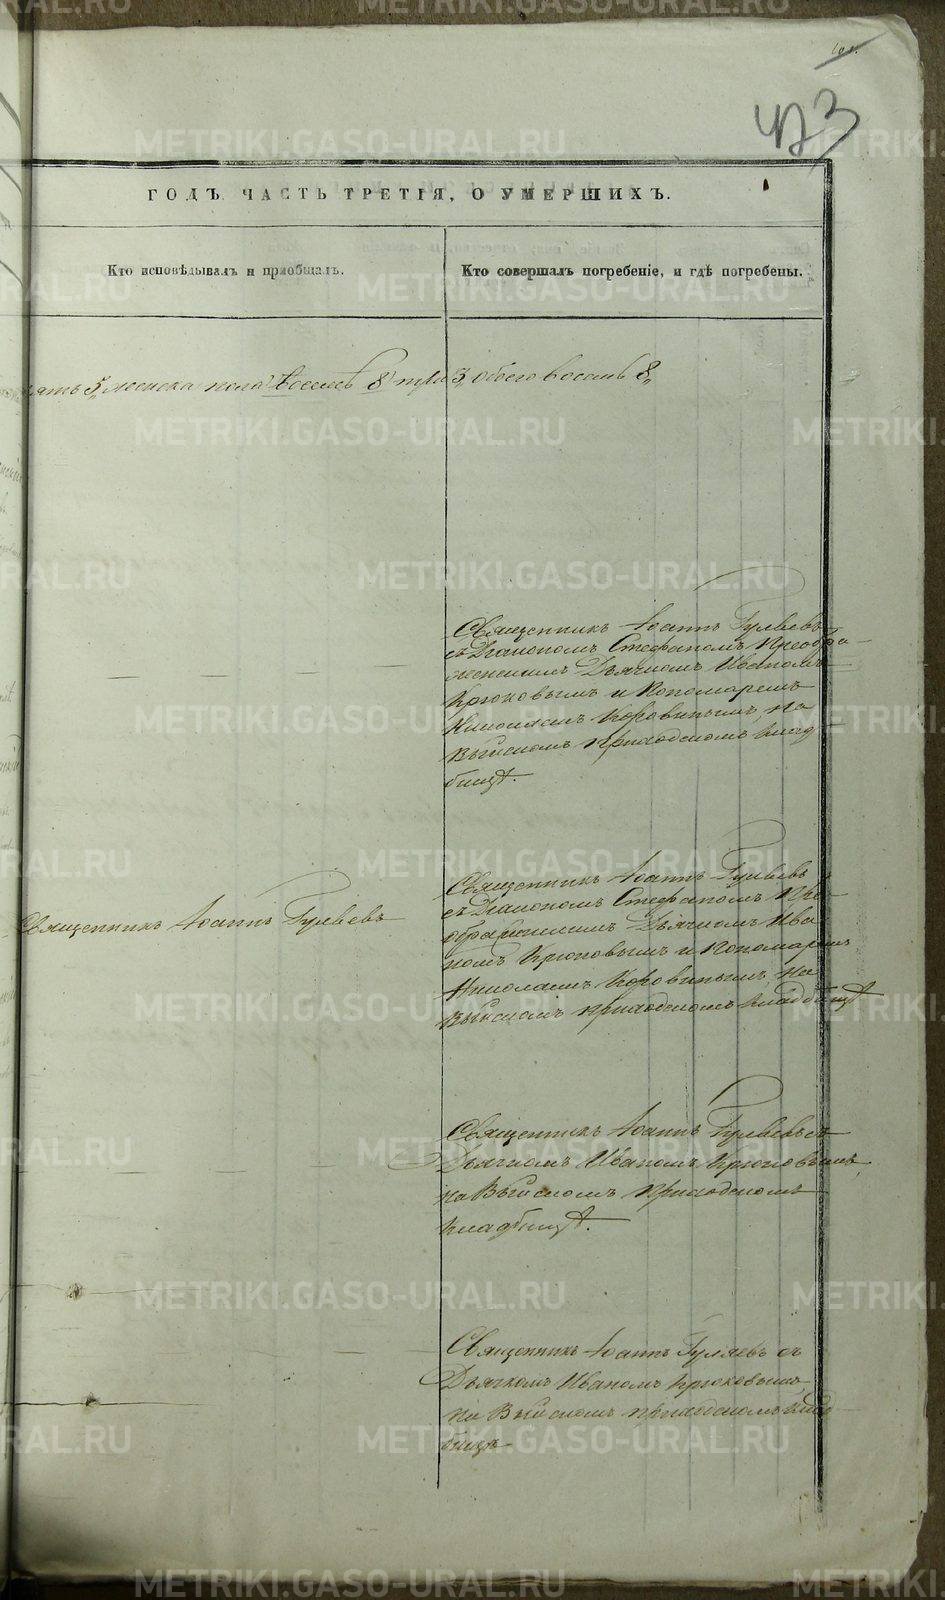 METRIKI.GASO-URAL.RU
473
ГОДЪ ЧАСТЬ ТРЕТІЯ, О УМЕРШИХЪ.
Кто исповѣдывалъ и пріобщалъ.
Кто совершалъ погребеніе, и гдѣ погребены.
5, женска пола восемь 8 три 3, обоего восемь 8,
Священникъ Іоаннъ Гуляевъ
съ Діакономъ Стефаномъ Преобра-
женскимъ Дьячкомъ Иваномъ
Крюковымъ и Пономаремъ
Николаемъ Коровинымъ, на
Выйскомъ приходскомъ клад
бищѣ.
Священникъ Іоаннъ Гуляевъ
Священникъ Іоаннъ Гуляевъ
съ Діакономъ Стефаномъ Пре-
ображенскимъ Дьячкомъ Ива
номъ Крюковымъ и Пономаремъ
Николаемъ Коровинымъ, на
Выйскомъ приходскомъ кладбищѣ
Священникъ Іоаннъ Гуляевъ съ
Дьячкомъ Иваномъ Крюковымъ,
на Выйскомъ приходскомъ
кладбищѣ.
Священникъ Іоаннъ Гуляевъ съ
Дьячкомъ Иваномъ Крюковымъ,
на Выйскомъ приходскомъ клад-
бищѣ